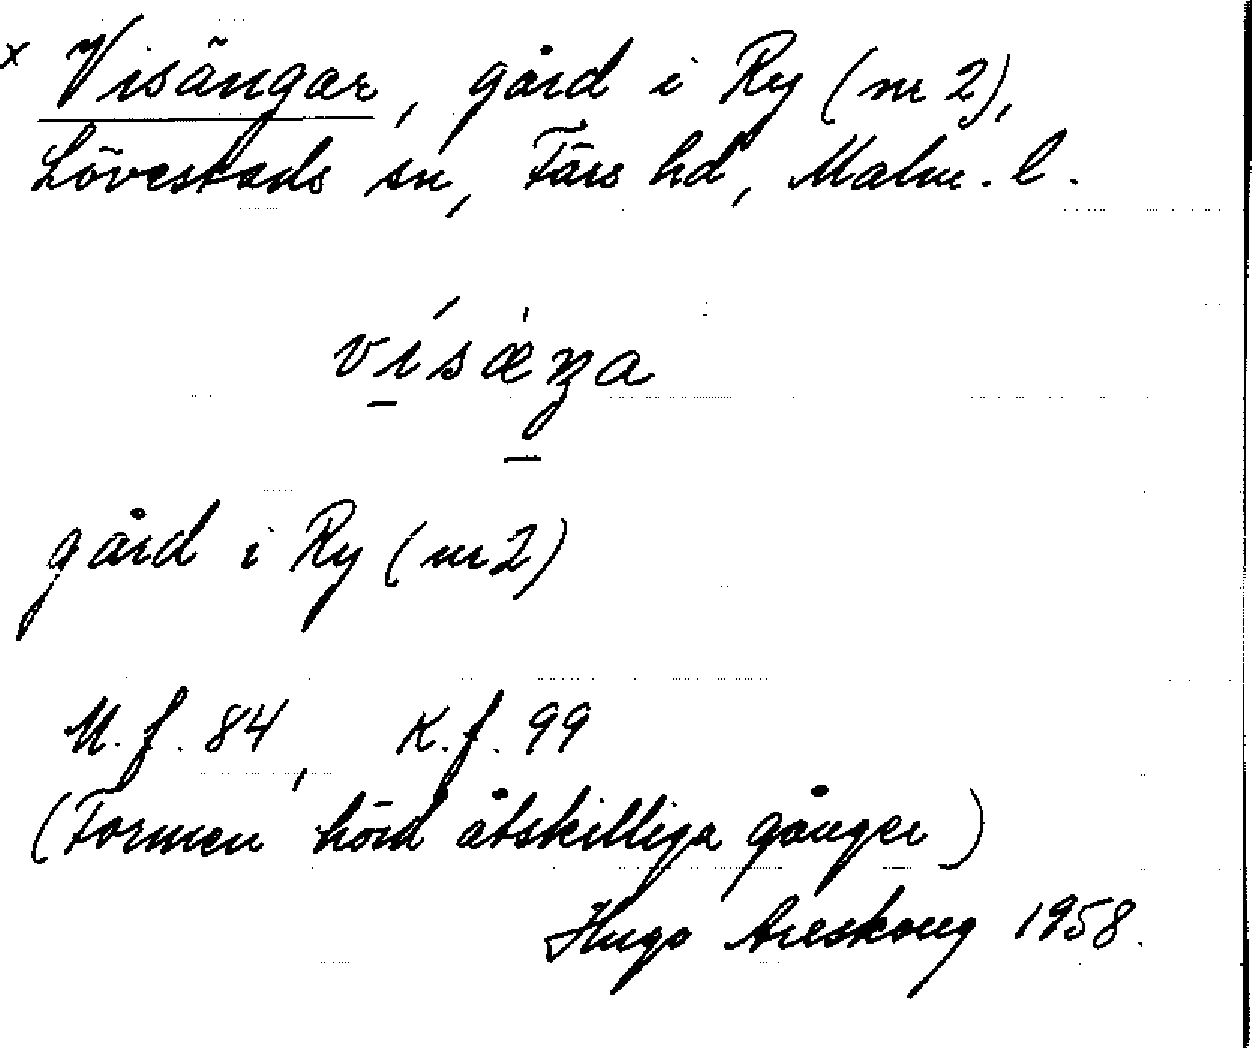 x Visängar, gård i Ry (nr 2),
Lövestads sn, Färs hd, Malm. l.
vísæ̀ŋa
gård i Ry (nr 2)
U.f. 84, K.f. 99
(Formen hörd åtskilliga gånger)
Hugo Areskoug 1958.